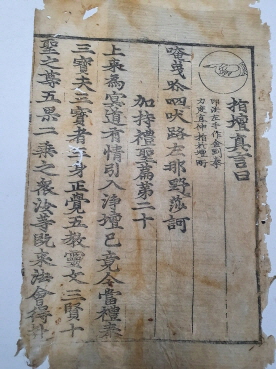 指壇真言曰
印法左手作金剛拳
力度直伸指於壇所
唵 曳 吽 呬 吠 路 左 那 野 莎 訶
加持禮聖篇第二十
上來為冥道有情引入淨壇已竟今當禮奉
三寳夫三寳者三身正覺五教靈文三賢十
聖之尊五果二乘之衆汝等既來法會得